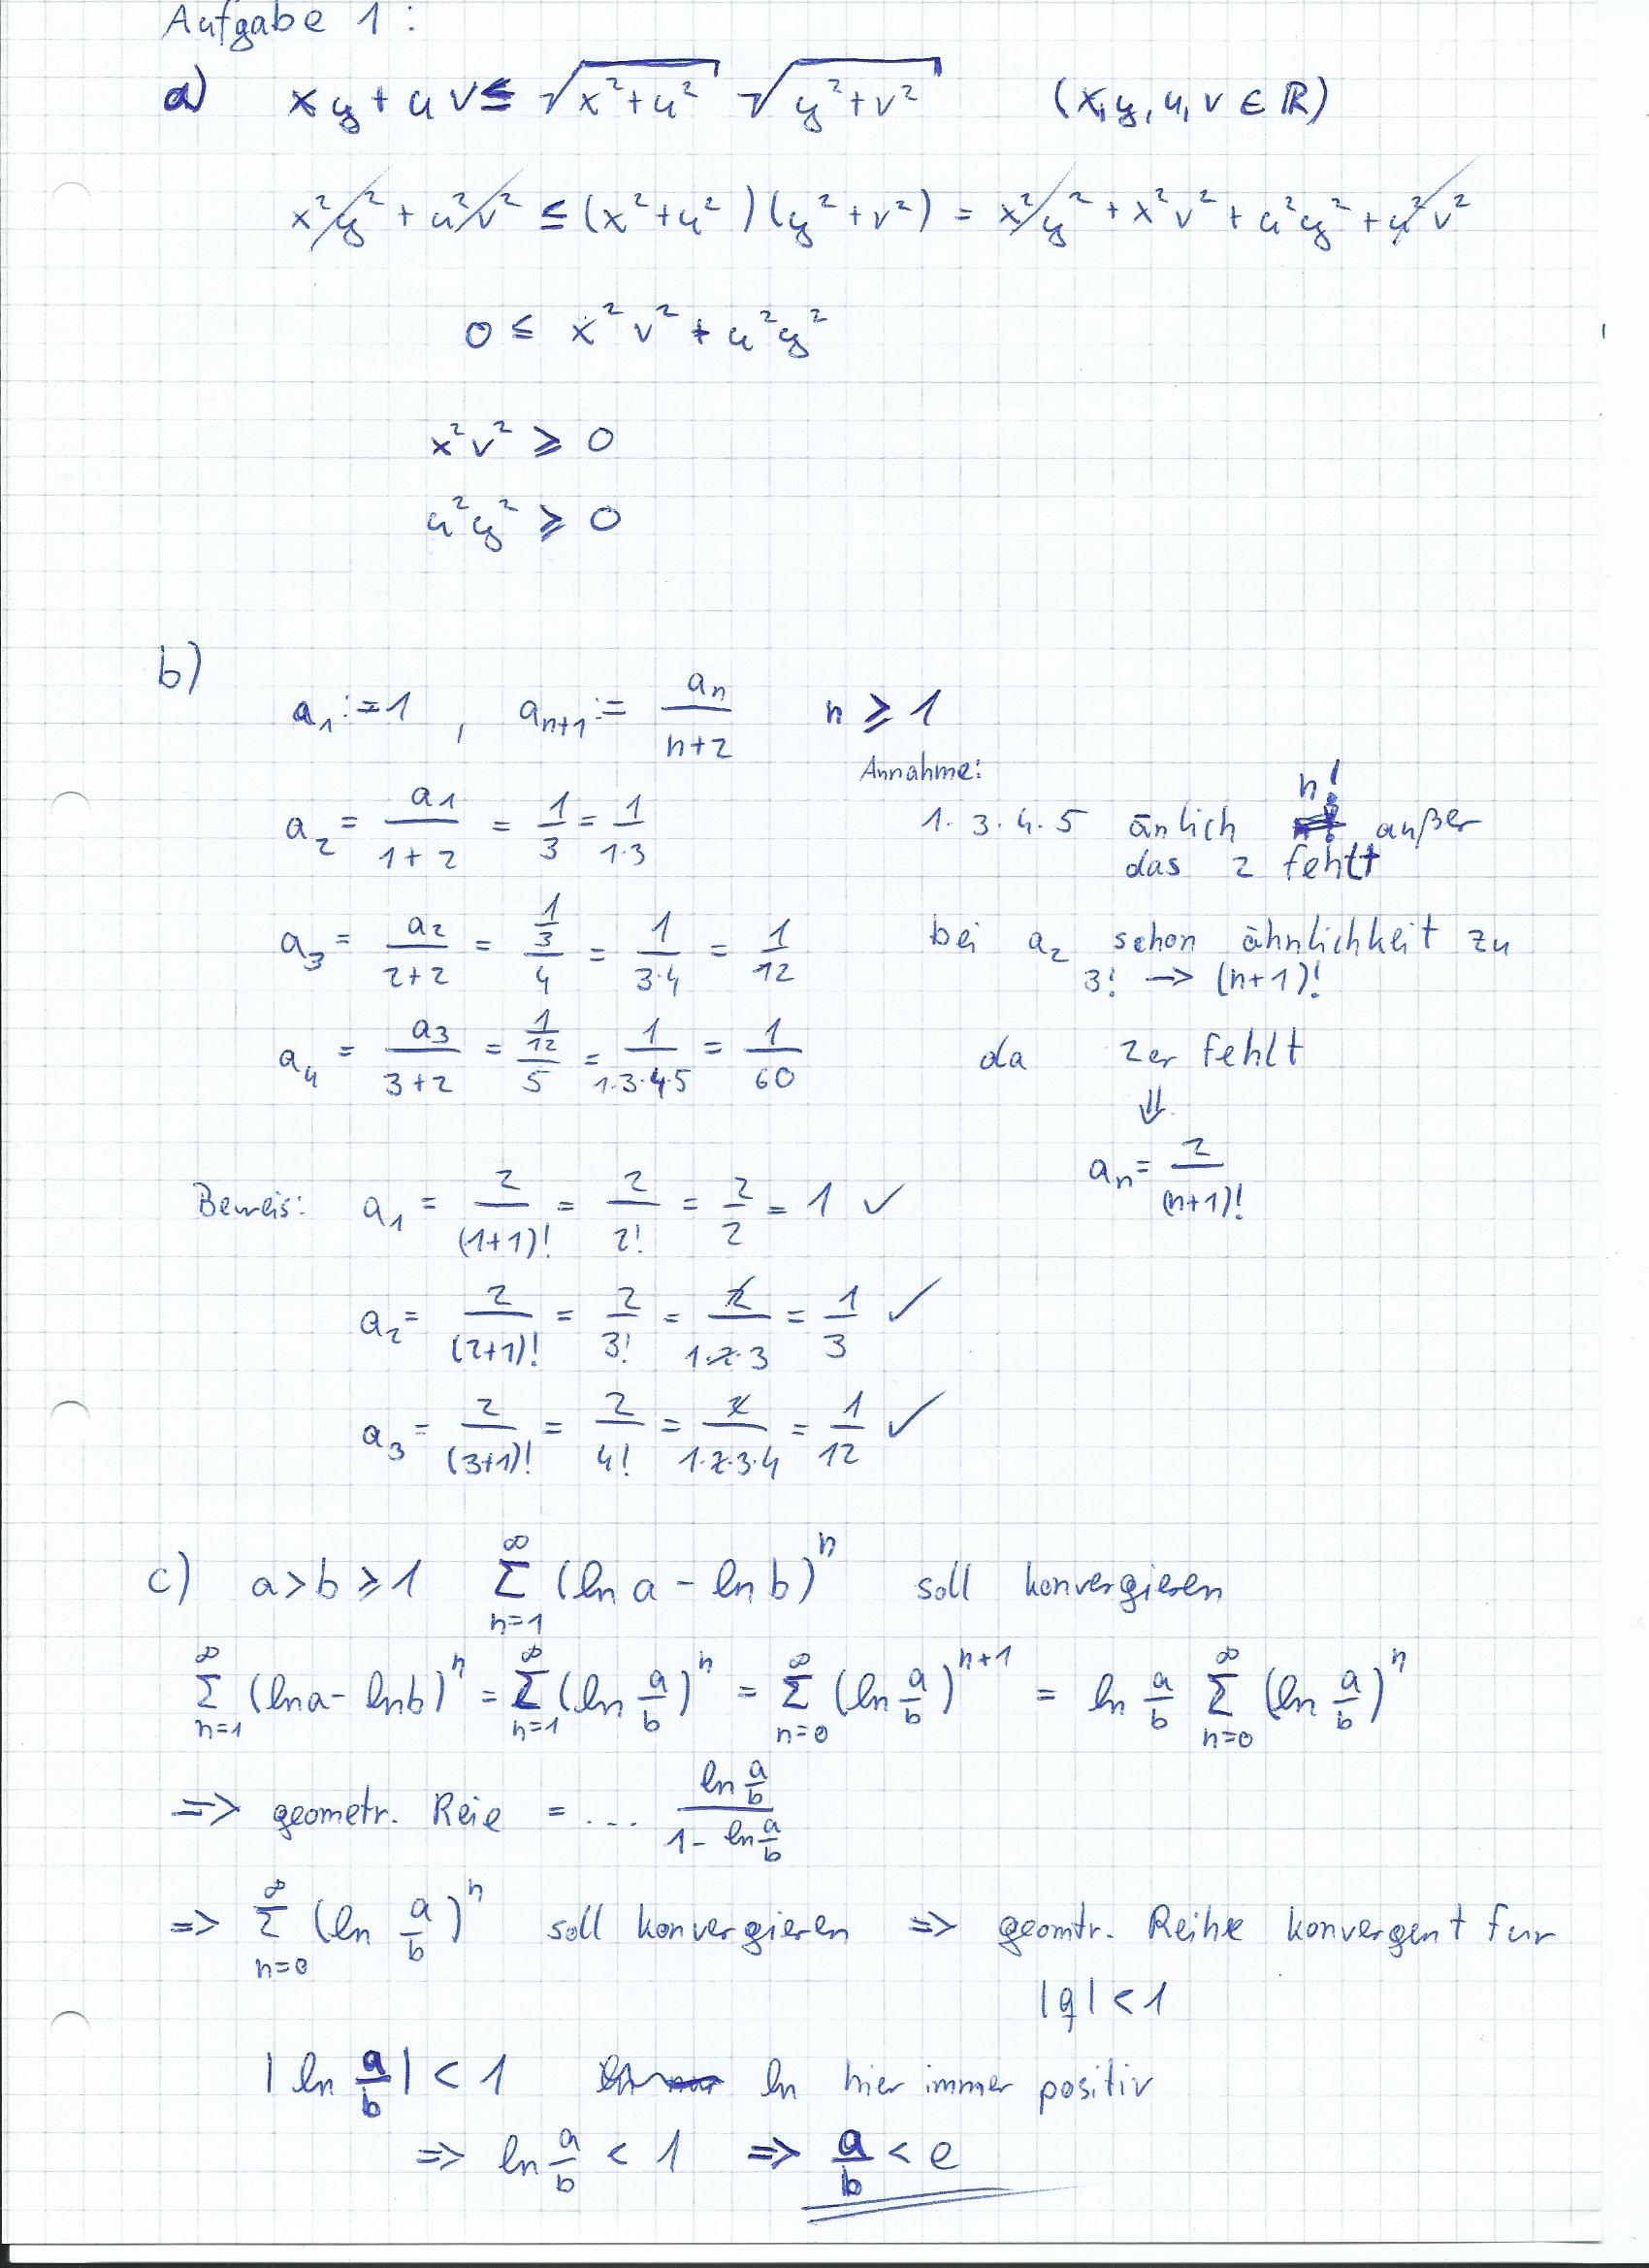 Aufgabe 1:
a) xy + uv ≤ √(x²+u²) √(y²+v²) (x,y,u,v ∈ ℝ)
x²y² + u²v² ≤ (x²+u²)(y²+v²) = x²y² + x²v² + u²y² + u²v²
0 ≤ x²v² + u²y²
x²v² ≥ 0
u²y² ≥ 0
b)
a₁ := 1 , aₙ₊₁ := aₙ/(n+2) n ≥ 1
Annahme:
a₂ = a₁/(1+2) = 1/3 = 1/(1·3) 1·3·4·5 änlich n! außer
das 2 fehlt
a₃ = a₂/(2+2) = (1/3)/4 = 1/(3·4) = 1/12 bei a₂ schon ähnlichkeit zu
3! → (n+1)!
a₄ = a₃/(3+2) = (1/12)/5 = 1/(1·3·4·5) = 1/60 da 2er fehlt
⇓
aₙ = 2/(n+1)!
Beweis: a₁ = 2/(1+1)! = 2/2! = 2/2 = 1 ✓
a₂ = 2/(2+1)! = 2/3! = 2/(1·2·3) = 1/3 ✓
a₃ = 2/(3+1)! = 2/4! = 2/(1·2·3·4) = 1/12 ✓
c) a > b ≥ 1 ∑_{n=1}^{∞} (ln a - ln b)ⁿ soll konvergieren
∑_{n=1}^{∞} (ln a - ln b)ⁿ = ∑_{n=1}^{∞} (ln a/b)ⁿ = ∑_{n=0}^{∞} (ln a/b)ⁿ⁺¹ = ln a/b ∑_{n=0}^{∞} (ln a/b)ⁿ
=> geometr. Reie = ... (ln a/b)/(1 - ln a/b)
=> ∑_{n=0}^{∞} (ln a/b)ⁿ soll konvergieren => geomtr. Reihe konvergent fur
|q| < 1
|ln a/b| < 1 ln hier immer positiv
=> ln a/b < 1 => a/b < e